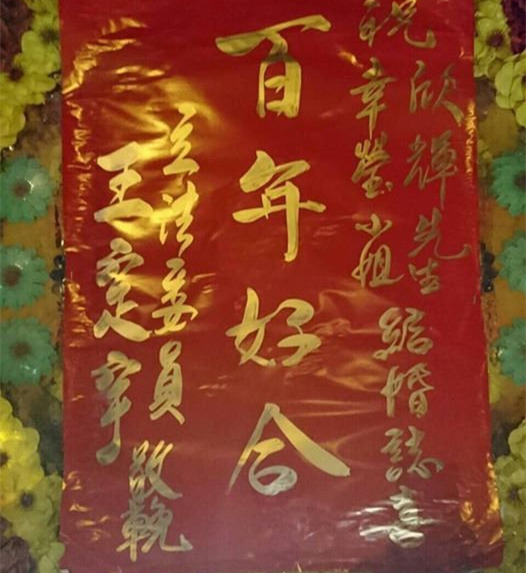 祝 欣輝先生
幸瑩小姐 結婚誌喜
百年好合
立法委員
王定宇 敬輓